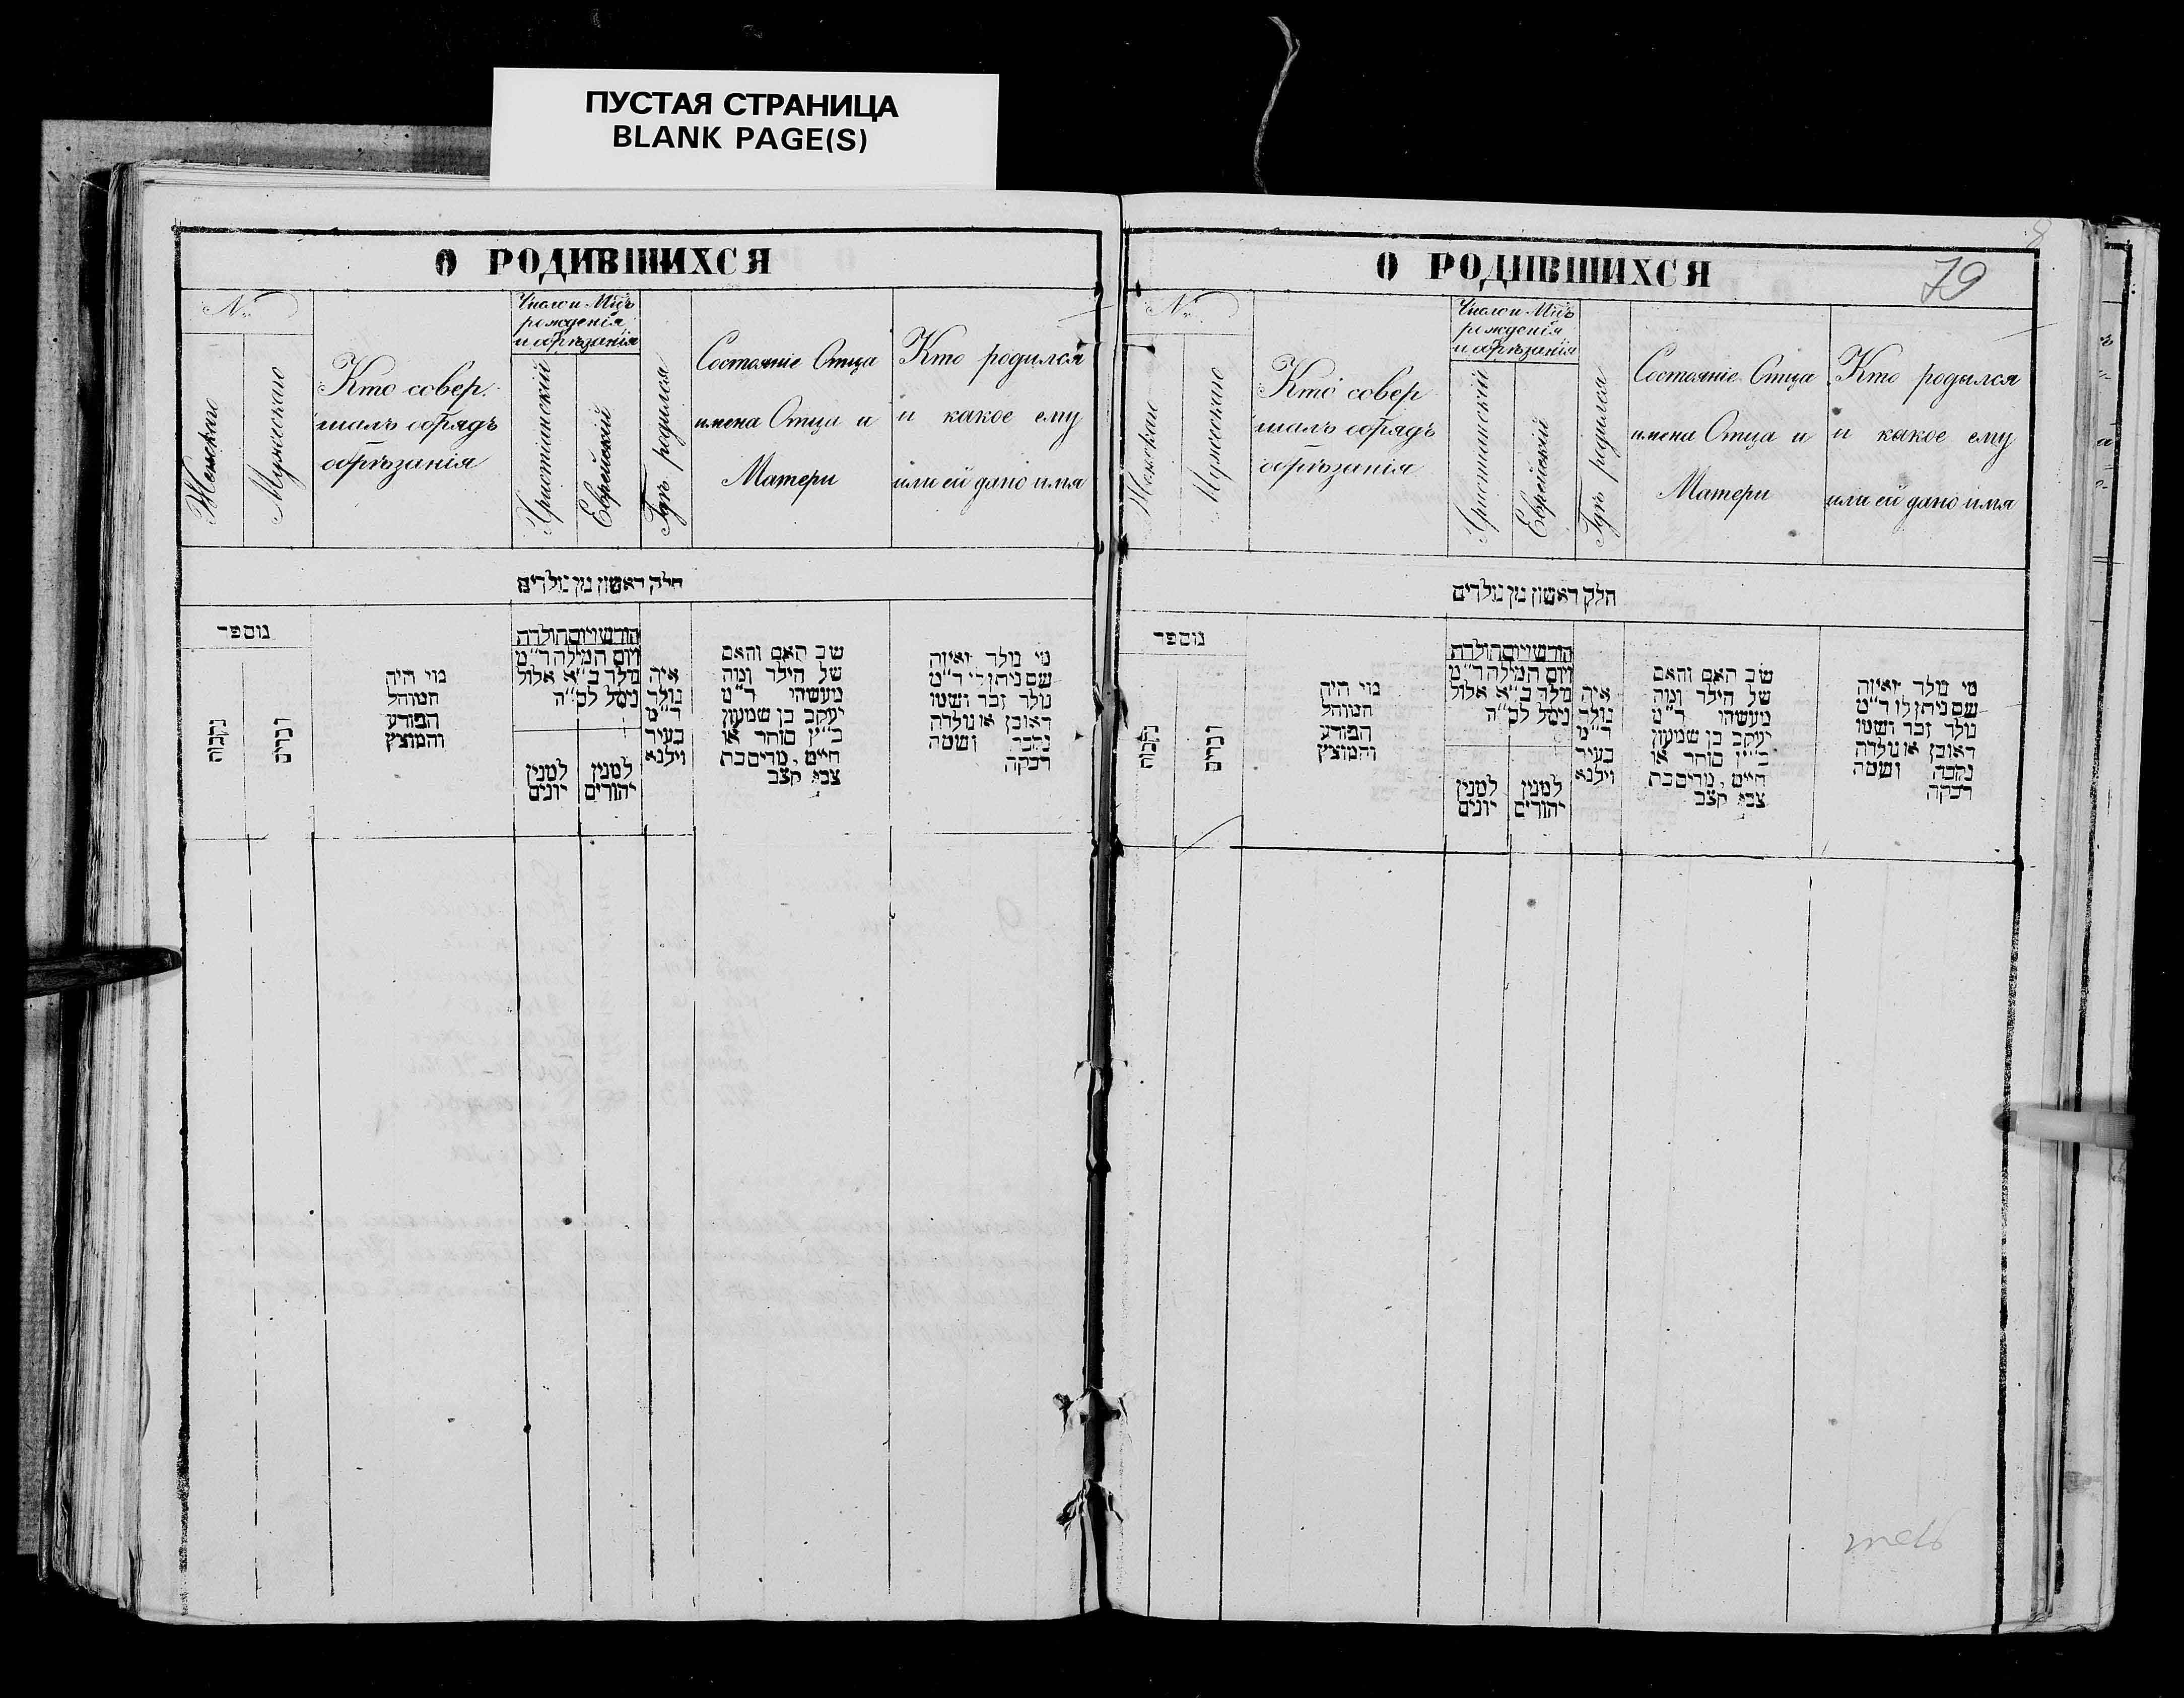 ПУСТАЯ СТРАНИЦА
BLANK PAGE(S)
О РОДИВШИХСЯ
№
Женскаго
Мужескаго
Кто совер-
шалъ обрядъ
обрѣзанія
Число и Мцъ
рожденія
и обрѣзанія
Христіанскій
Еврейскій
Гдѣ родился
Состояніе Отца
имена Отца и
Матери
Кто родился
и какое ему
или ей дано имя
חלק ראשון מן נולדים
מספר
נקבות
זכרים
מי היה
המוהל
הפורע
והמוצץ
חודש ויום הולדת
ויום המילה ד״מ
נולד ב״א אלול
נימל לס״ה
למנין
יונים
למנין
יהודים
איה
נולד
ד״מ
בעיר
וילנא
שב האם והאם
של הילד ומה
מעשהו ד״מ
יעקב בן שמעון
כ״ץ סוחר או
חייט, מריםבת
צבא קצב
מי נולד ואיזה
שם ניתן לו ד״מ
נולד זכר ושמו
ראובן או נולדה
נקבה ושמה
רבקה
О РОДИВШИХСЯ
79
№
Женскаго
Мужескаго
Кто совер
шалъ обрядъ
обрѣзанія
Число и Мцъ
рожденія
и обрѣзанія
Христіанскій
Еврейскій
Гдѣ родился
Состояніе Отца
имена Отца и
Матери
Кто родился
и какое ему
или ей дано имя
חלק ראשון מן נולדים
מספר
נקבות
זכרים
מי היה
המוהל
הפורע
והמוצץ
חודש ויום הולדת
ויום המילה ד״מ
נולד ב״א אלול
נימל לס״ה
למנין
יונים
למנין
יהודים
איה
נולד
ד״מ
בעיר
וילנא
שב האם והאם
של הילד ומה
מעשהו ד״מ
יעקב בן שמעון
כ״ץ סוחר או
חייט, מריםבת
צבא קצב
מי נולד ואיזה
שם ניתן לו ד״מ
נולד זכר ושמו
ראובן או נולדה
נקבה ושמה
רבקה